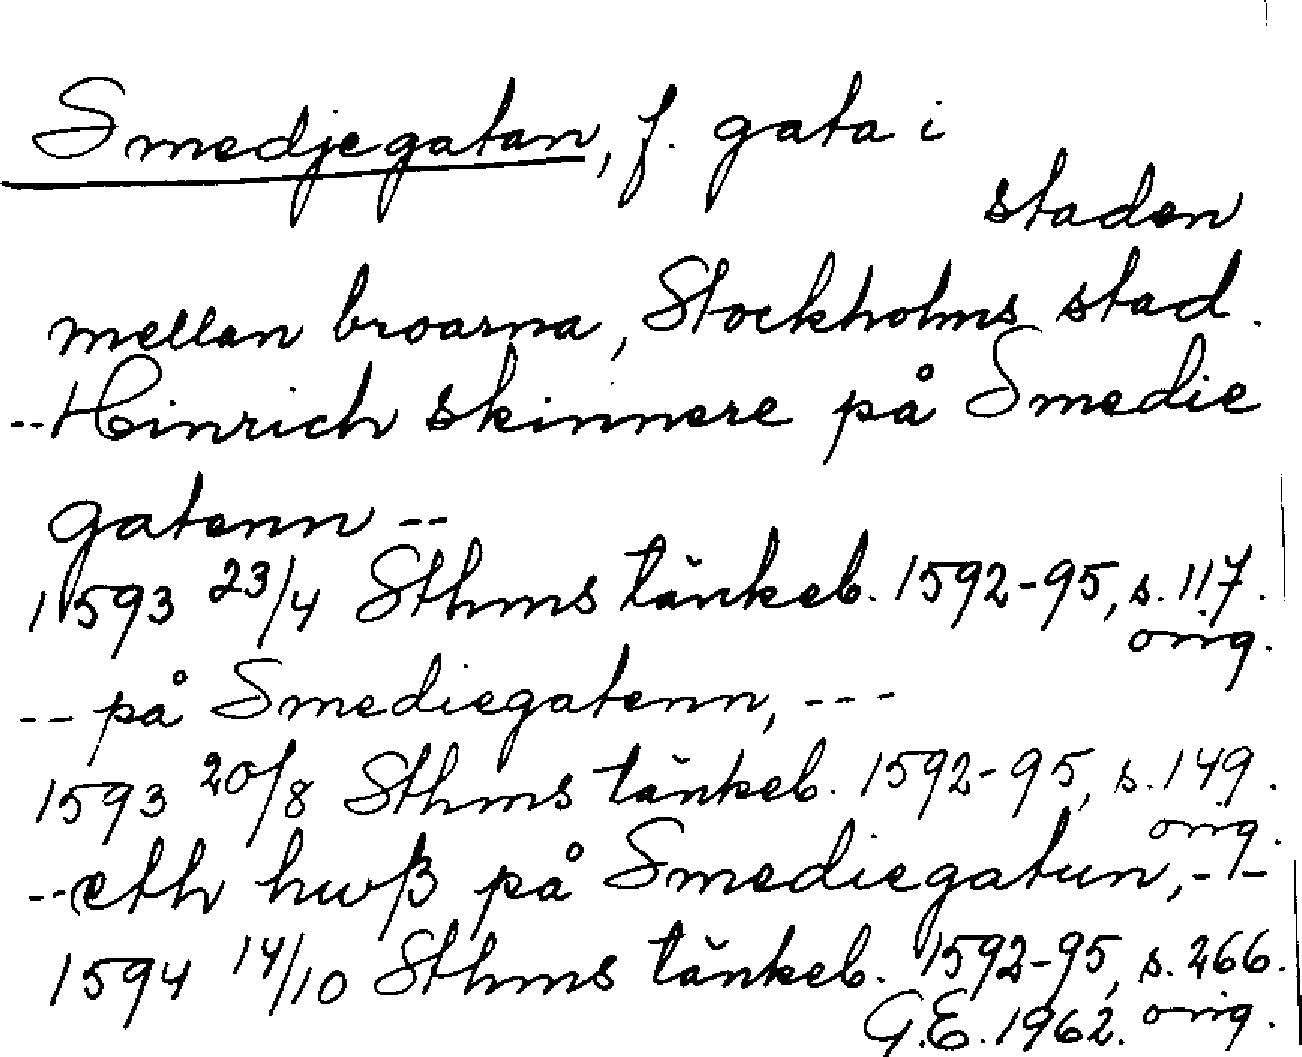 Smedjegatan, f. gata i
staden
mellan broarna, Stockholms stad.
-- Hinrich skinnere på Smedie
gatenn --
1593 23/4 Sthms tänkeb. 1592-95, s. 117.
orig.
-- på Smediegatenn, ---
1593 20/8 Sthms tänkeb. 1592-95, s. 149.
orig.
-- eth huuß på Smediegatun, --
1594 14/10 Sthms tänkeb. 1592-95, s. 266.
G.E. 1962. orig.